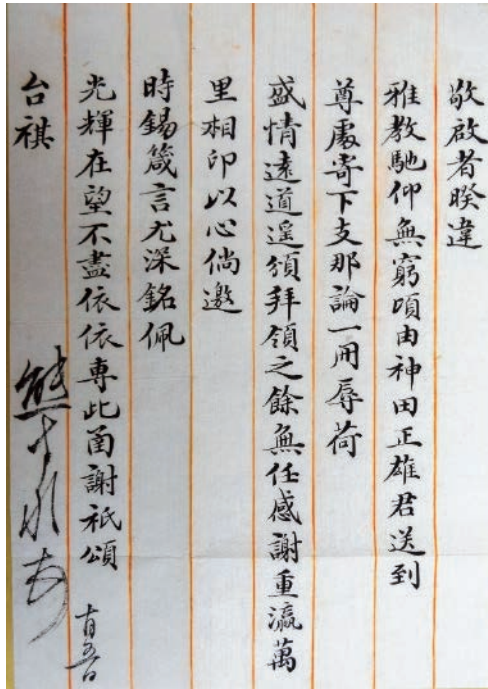 敬啟者暌違
雅教馳仰無窮頃由神田正雄君送到
尊處寄下支那論一冊辱荷
盛情遠道遥頒拜領之餘無任感謝重瀛萬
里相印以心倘邀
時錫箴言尤深銘佩
光輝在望不盡依依專此函謝祇頌
台祺